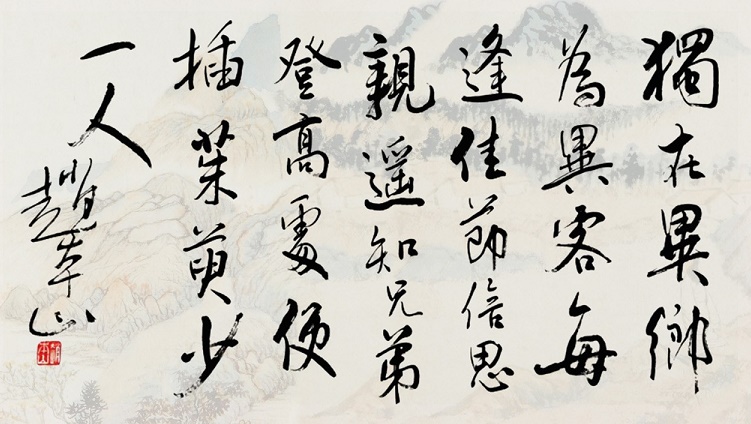 獨在異鄉
為異客每
逢佳節倍思
親遥知兄弟
登高處便
插茱萸少
一人
趙本山